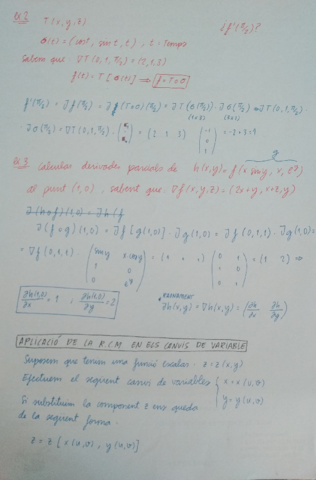 Ex 2 T(x,y,z) ¿f'(π/2)?
σ(t) = (cost, sint, t), t = temps
Sabem que ∇T(0,1,π/2) = (2,1,3)
f(t) = T[σ(t)] ⟹ f = T∘σ
f'(π/2) = ∂f(π/2) = ∂(T∘σ)(π/2) = ∂T(σ(π/2)) · ∂σ(π/2) = ∂T(0,1,π/2)
∂σ(π/2) = ∇T(0,1,π/2)
Ex 3 Calcular derivades parcials de h(x,y) = f(x siny, x, e^y)
al punt (1,0), sabent que ∇f(x,y,z) = (2x+y, x+z, y)
∂(f∘g)(1,0) = ∂f[g(1,0)] · ∂g(1,0) = ∂f(0,1,1) · ∂g(1,0) =
= ∇f(0,1,1) · (x siny x cosy
1 0
0 e^y) = (1 1 1) (0 1
1 0
0 1) = (1 2) ⟹
∂h(1,0)/∂x = 1 , ∂h(1,0)/∂y = 2
∂h(x,y) = ∇h(x,y) = (∂h/∂x ∂h/∂y)
APLICACIÓ DE LA R.C.M EN ELS CANVIS DE VARIABLE
Suposem que tenim una funció escalar: z = z(x,y)
Efectuem el següent canvi de variables { x = x(u,v)
y = y(u,v)
Si substituïm la component z ens queda
de la següent forma:
z = z[x(u,v), y(u,v)]